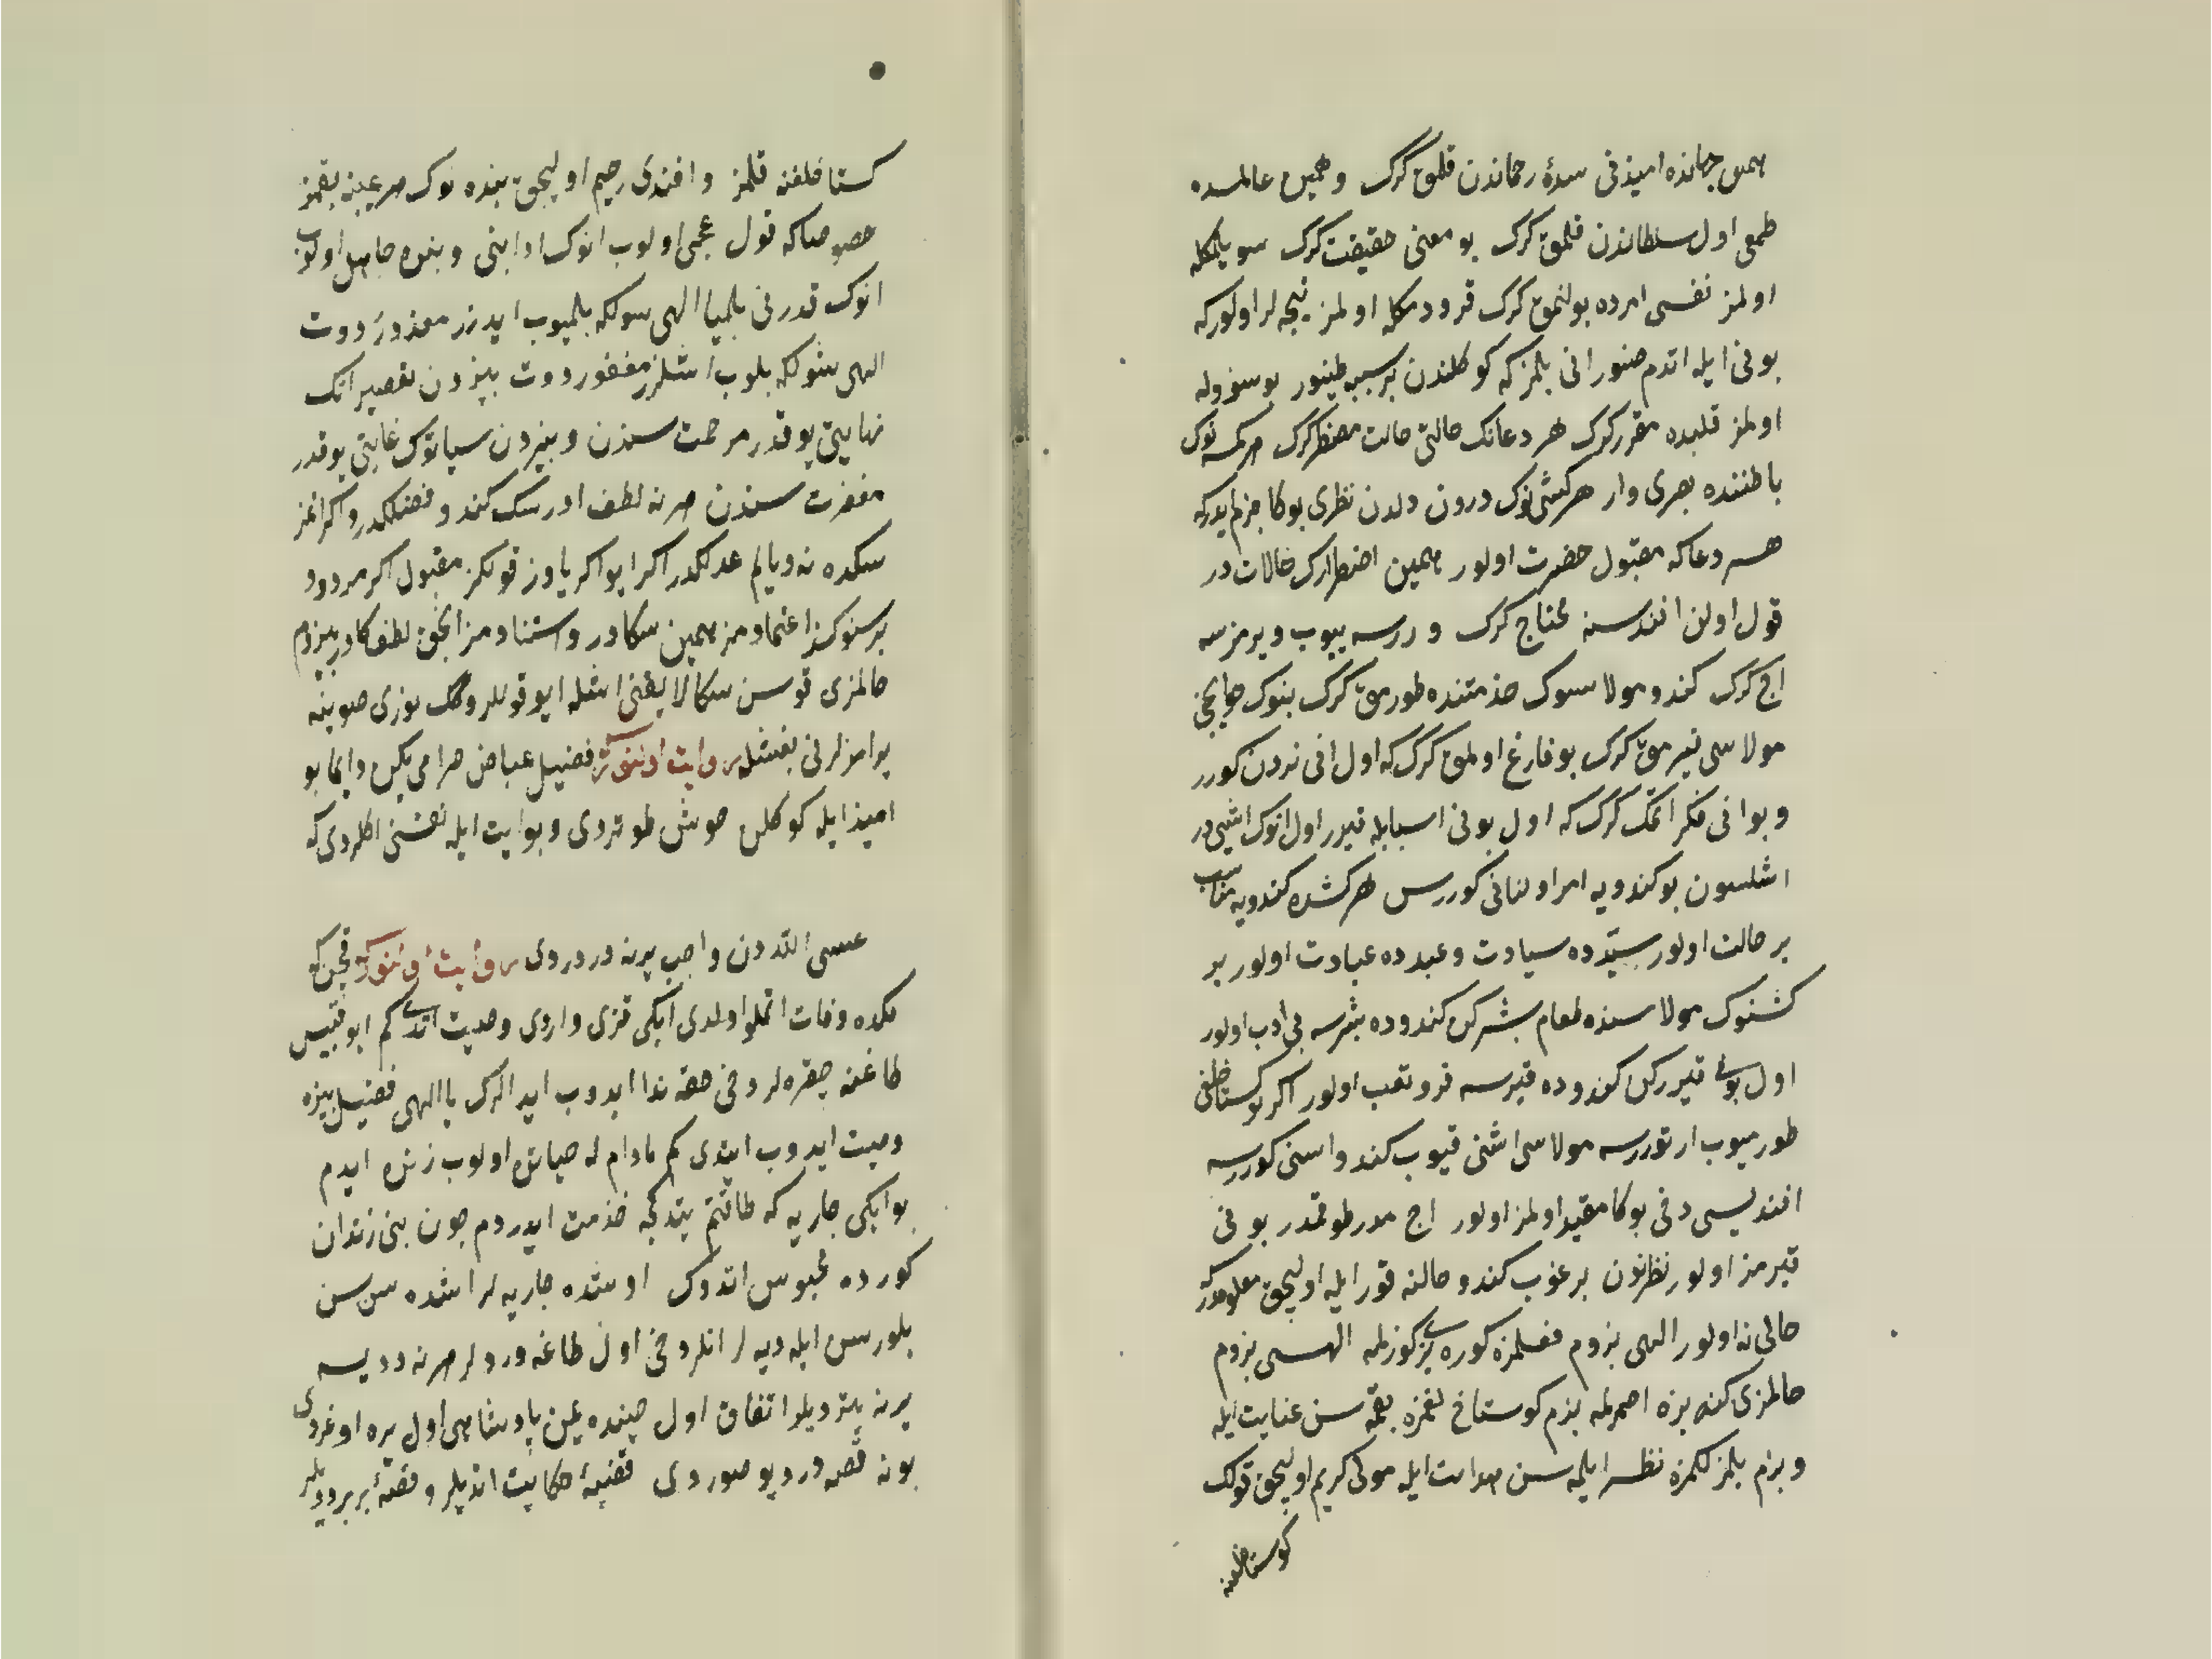 همین جهانده امیذنی سدۀ رحماندن قلمق گرک و همین عالمده
طمعی اول سلطاندن قلمق گرک بو معنی حقیقت گرک سویلمکله
اولمز نفسی امرده بولنمق گرک قرو دمکله اولمز نیجه لر اولورکه
بونی ایله اتدم صنور انی بلمز که کوکلندن بر سببه طینور بو سوزوله
اولمز قلبده مقرر گرک هر دعانک حالتی حالت مضطر گرک هر کمسه نوک
باطننده بصری وار هر کشی نوک درون دلدن نظری بوکا جزم ایدرکه
هر دعا که مقبول حضرت اولور همین اضطرارک حالات در
قول اولن افندسنه محتاج گرک و ررسه ییوب ویرمزسه
اج گرک کندو مولاسنوک خذمتنده طورمق گرک بنوک حوایجنی
مولاسی قیرمق گرک بو فارغ اولمق گرک که اول انی نردن کورر
و بو انی فکر اتمک گرک که اول بونی اسبابله قیرر اول انوک اشی در
اشلسون بو کندویه امر اولنانی کوررس هر کشده کندویه مناسب
بر حالت اولور سیّدده سیادت و عبدده عبادت اولور بر
کشنوک مولاسنده طعام بشرکن کندو ده بشرسه بی ادب اولور
اول بونی قیررکن کندو ده قیرسه قرو تعب اولور اکر کوستاخلغی
طورمیوب ارتوررسه مولاسی اشنی قیوب کندو اسنی کوررسه
افندیسی دخی بوکا مقید اولمز اولور اج مدر طوقمدر بونی
قیرمز اولور نظرنون برغوب کندو حالنه قور ایله اولیجق معلومدرکه
حالی نه اولور الهی بزوم فعلمزه کوره بزی کوزلمه الهی بزوم
حالمزی کندبزه اصمرلمه بزم کوستاخلغمزه بقمه سن عنایت ایله
و بزم بلمزلکمزه نظر ایلمه سن هدایت ایله مولی کریم اولیجق قولک
کوستاخلغنه
کستاخلغنه قلمز و افندی رحیم اولیجق بنده نوک هر عیبنه بقمز
خصوصا که قول عجمی اولوب انوک ادابنی و بنده جاهل اولوب
انوک قدرنی بلمیا الهی شولکه بلمیوب ایدرز معذور دوت
الهی شولکه بلوب اشلرز مغفور دوت بیزدن تقصیرانک
نهایتی یوقدر مرحمت سندن و بیزدن سیاتوک غایتی یوقدر
مغفرت سندن هر نه لطف ادرسک کندو فضلکدر و اکر اتمز
سکده نه دیالم عدلکدر اکر ایو اکر یاوز قولکز مقبول اکر مردود
بر سنوکز اعتمادمز همین سکادر و استنادمز انجق لطفکادر بیزوم
حالمزی قو سن سکا لایقنی اشله ایو قوللروک یوزی صوینه
یرامزلرنی بغشله روایت اولنور که فضیل عیاض حرامی یکن دایما بو
امیذ ایله کوکلن خوش طوتردی و بو ایت ایله نفسنی اکلردی که
عسی اللّه دن واجب یرنه در دردی روایت اولنور که قچن که
مکده وفات اتملو اولدی ایکی قزی واردی وصیت اتدی کم ابو قبیس
طاغنه چقره لر دخی حقه ندا ایدوب ایدالرک یا الهی فضیل بیزه
وصیت ایدوب ایتدی کم مادام که حیاتده اولوب زنده ایدم
بو ایکی جاریه که طاقتم یتدکجه خذمت ایدردم چون بنی زندان
کورده محبوس اتدوک اوشده جاریه لر اشده سن سن
بلورسن ایله دیه لر انلر دخی اول طاغه وردیلر هر نه ددیسه
یرنه یتردیلر اتفاق اول حینده یمن پادشاهی اول یره اوغردی
بو نه قصه در دیو صوردی قضیۀ حکایت اتدیلر و قصۀ بر بر ددیلر